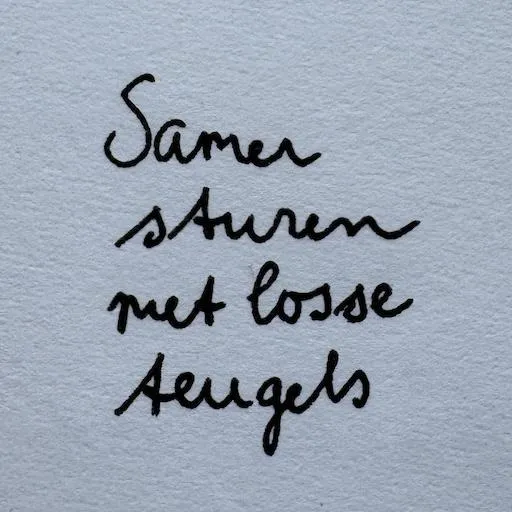 Samen
sturen
met losse
teugels